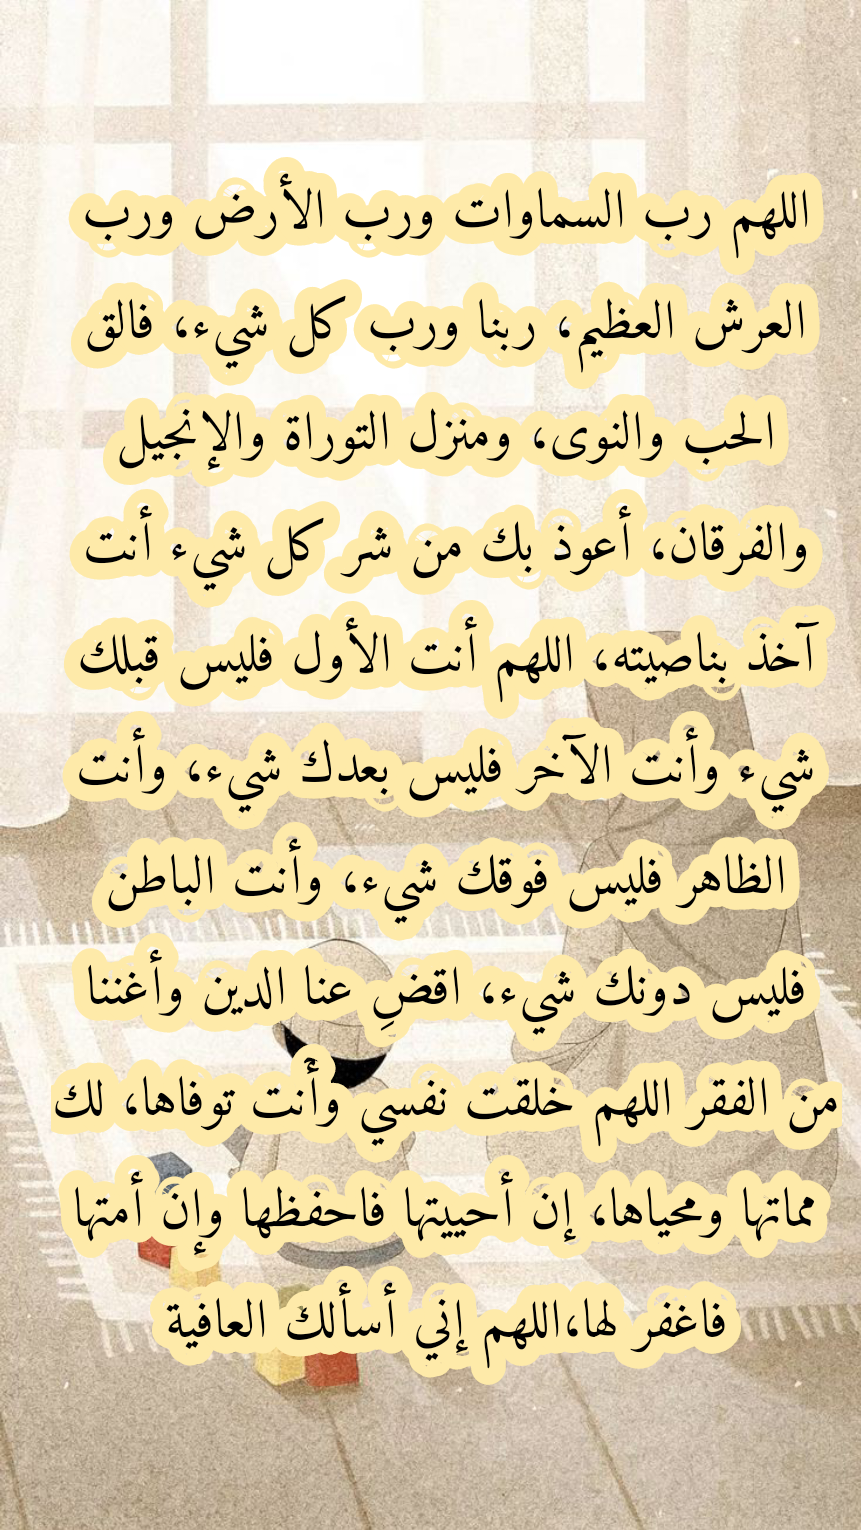 اللهم رب السماوات ورب الأرض ورب
العرش العظيم، ربنا ورب كل شيء، فالق
الحب والنوى، ومنزل التوراة والإنجيل
والفرقان، أعوذ بك من شر كل شيء أنت
آخذ بناصيته، اللهم أنت الأول فليس قبلك
شيء وأنت الآخر فليس بعدك شيء، وأنت
الظاهر فليس فوقك شيء، وأنت الباطن
فليس دونك شيء، اقضِ عنا الدين وأغننا
من الفقر اللهم خلقت نفسي وأنت توفاها، لك
مماتها ومحياها، إن أحييتها فاحفظها وإن أمتها
فاغفر لها،اللهم إني أسألك العافية